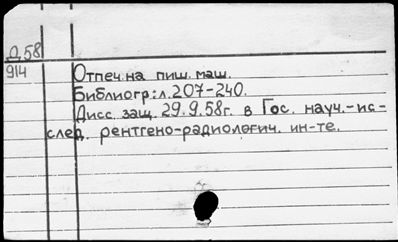 Д 58
914
Отпеч. на пиш. маш.
Библиогр: л. 207-240.
Дисс. защ. 29.9.58г. в Гос. науч.-ис-
след. рентгено-радиологич. ин-те.